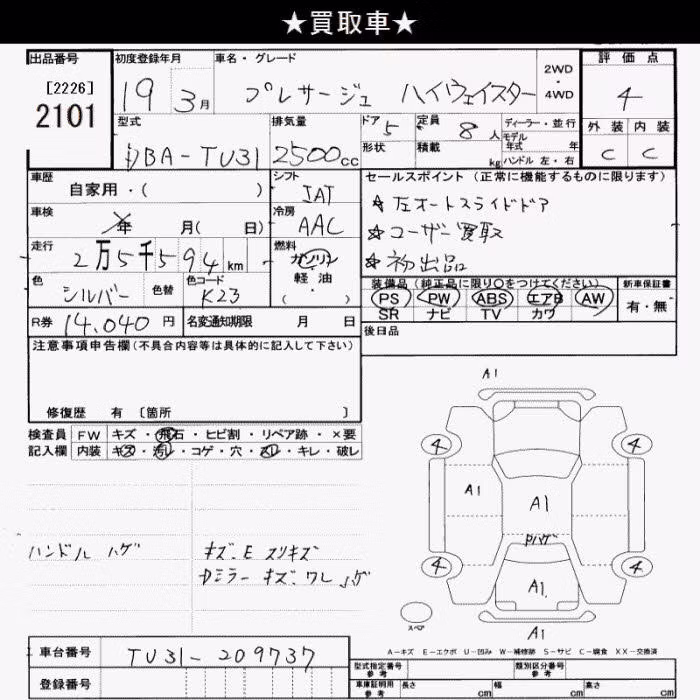 ★買取車★
出品番号 初度登録年月 車名・グレード 評価点
[2226]
2101
19 3月 プレサージュ ハイウェイスター 2WD・4WD 4
型式 排気量 ドア 5 定員 8人 ディーラー・並行 外装 内装
DBA-TU31 2500cc 形状 積載 kg モデル年式 年 C C
ハンドル 左・右
車歴 シフト セールスポイント(正常に機能するものに限ります)
自家用・( ) IAT ★左オートスライドドア
車検 年 月( 日) 冷房 AAC ★ユーザー買取
走行 燃料 ★初出品
2万5千594km ガソリン
軽油
( )
色 シルバー 色替 色コード K23
装備品(純正品に限り○をつけてください) 新車保証書
PS PW ABS エアB AW 有・無
SR ナビ TV カワ
R券 14,040円 名変通知期限 月 日 後日品
注意事項申告欄(不具合内容等は具体的に記入して下さい)
修復歴 有 〔箇所 〕
検査員 FW キズ・飛石・ヒビ割・リペア跡・×要
記入欄 内装 キズ・汚レ・コゲ・穴・スレ・キレ・破レ
ハンドル ハゲ
キズ.E スリキズ
ミラー キズ.ワレ ハゲ
A1
4 4
A1 A1
ハゲ
4 4
A1
A1
スペア
A-キズ E-エクボ U-凹み W-補修跡 S-サビ C-腐食 XX-交換済
車台番号 TU31-209737
登録番号
型式指定番号 参考 類別区分番号 参考
車庫証明用 参考 長さ cm 幅 cm 高さ cm